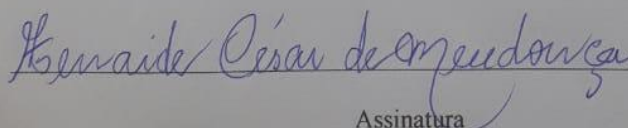 Zenaide César de Mendonça
Assinatura